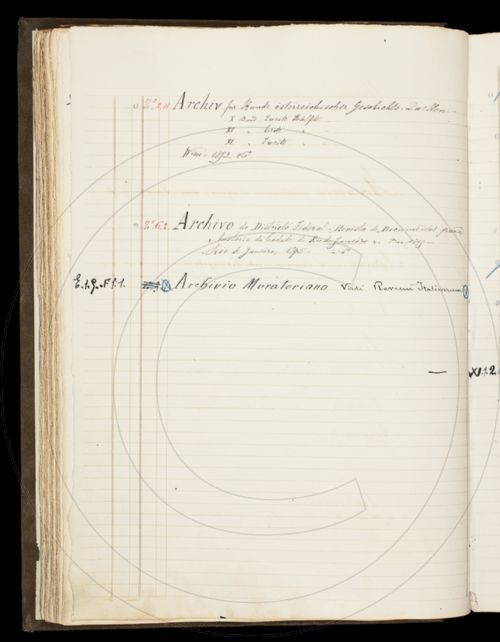 Archiv für Kunde österreichischer Geschichts-Quellen
X Band Zweite Hälfte
XI " Erste "
XI " Zweite "
Wien 1853 8º
Archivo do Districto Federal - Revista de Documentos para
a historia da cidade do Rio de Janeiro
Rio de Janeiro, 1895
E.1.9.-F.1.1. Archivio Muratoriano Vedi Rerum Italicarum
— XI.1.2.